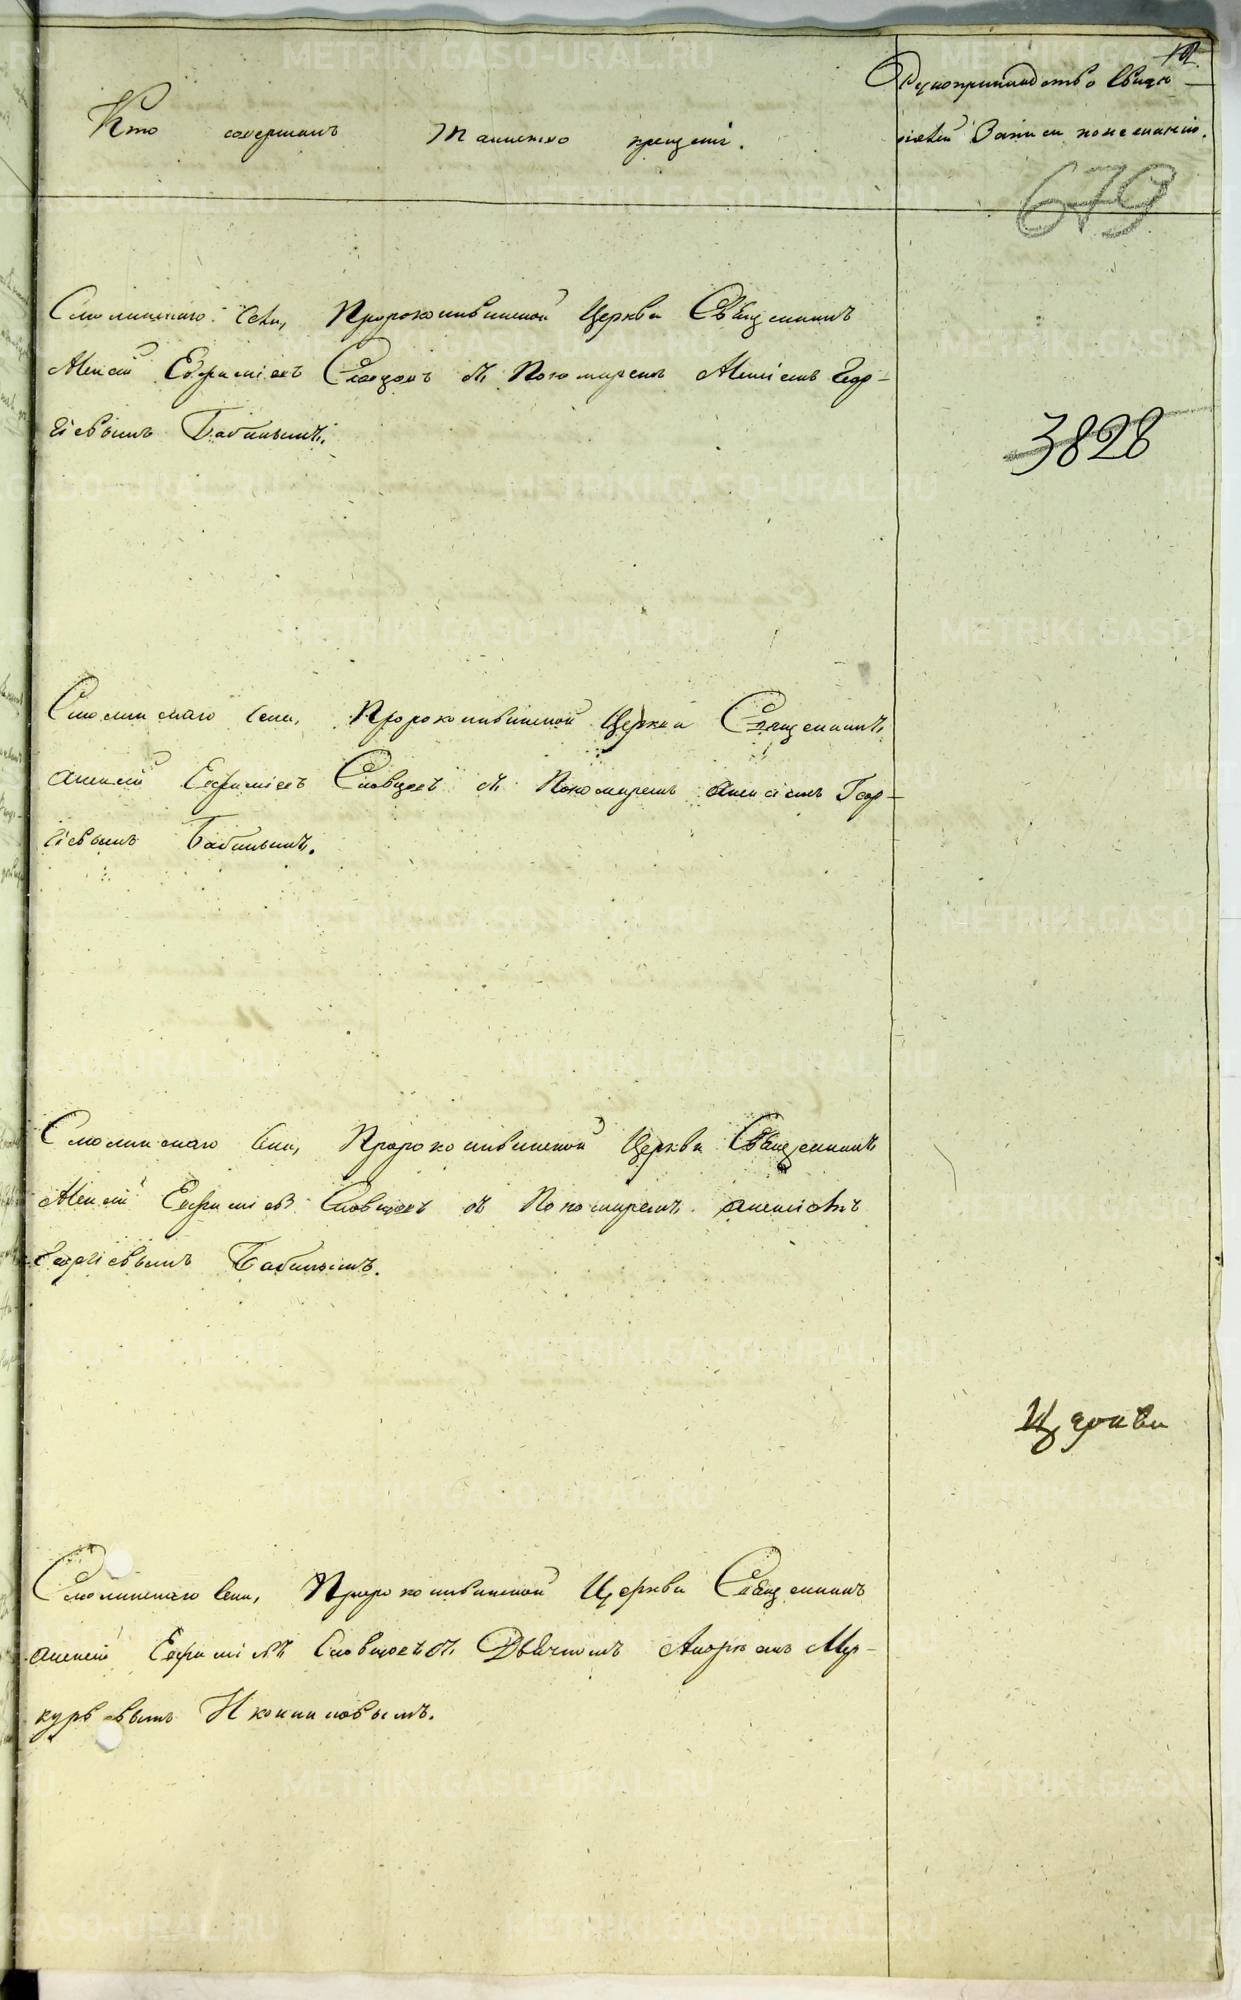 12.
Кто совершалъ таинство крещенія.
Рукоприкладство свидѣ-
телей записи по желанію.
679
Смолинскаго села, Пророкоильинской Церкви Священникъ
Алексій Ефиміевъ Словцовъ съ Пономаремъ Алексіемъ Геор-
гіевымъ Бабинымъ.
3828
Смолинскаго села, Пророкоильинской Церкви Священникъ
Алексій Ефиміевъ Словцовъ съ Пономаремъ Алексіемъ Геор-
гіевымъ Бабинымъ.
Смолинскаго села, Пророкоильинской Церкви Священникъ
Алексій Ефиміевъ Словцовъ съ Пономаремъ Алексіемъ
Георгіевымъ Бабинымъ.
Церкви
Смолинскаго села, Пророкоильинской Церкви Священникъ
Алексій Ефиміевъ Словцовъ съ Дьячкомъ Андреемъ Мер-
курьевымъ Иконниковымъ.
METRIKI.GASO-URAL.RU